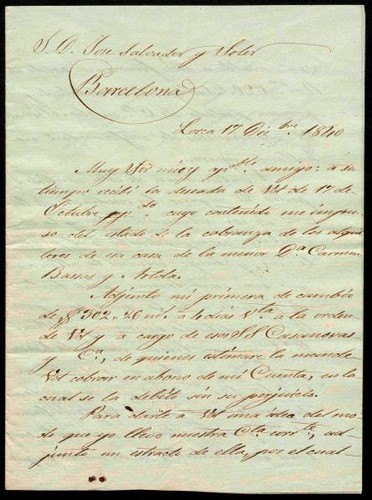 S. D. Jose Salvador y Soler
Barcelona
Lorca 17 Dic.bre 1840
Muy Sor mio y amigo: a su
tiempo recibí la deseada de Vd de 17 de
Octubre cuyo contenido me impu
so del estado de la cobranza de los alqui
leres de esa casa de la menor Da. Carmen
Bassas y
Adjunto mi primera de cambio
de 302..26 ms. a 4 dias Vta. a la orden
de Vd y a cargo de esos SS Casanovas
y Ca., de quienes estimare la mande
Vd cobrar en abono de mi Cuenta, en la
cual se la debito sin su perjuicio.
Para darle a Vd una idea del mo
do que yo llevo nuestra Cta. corrte., ad
junto un estracto de ella, por el cual